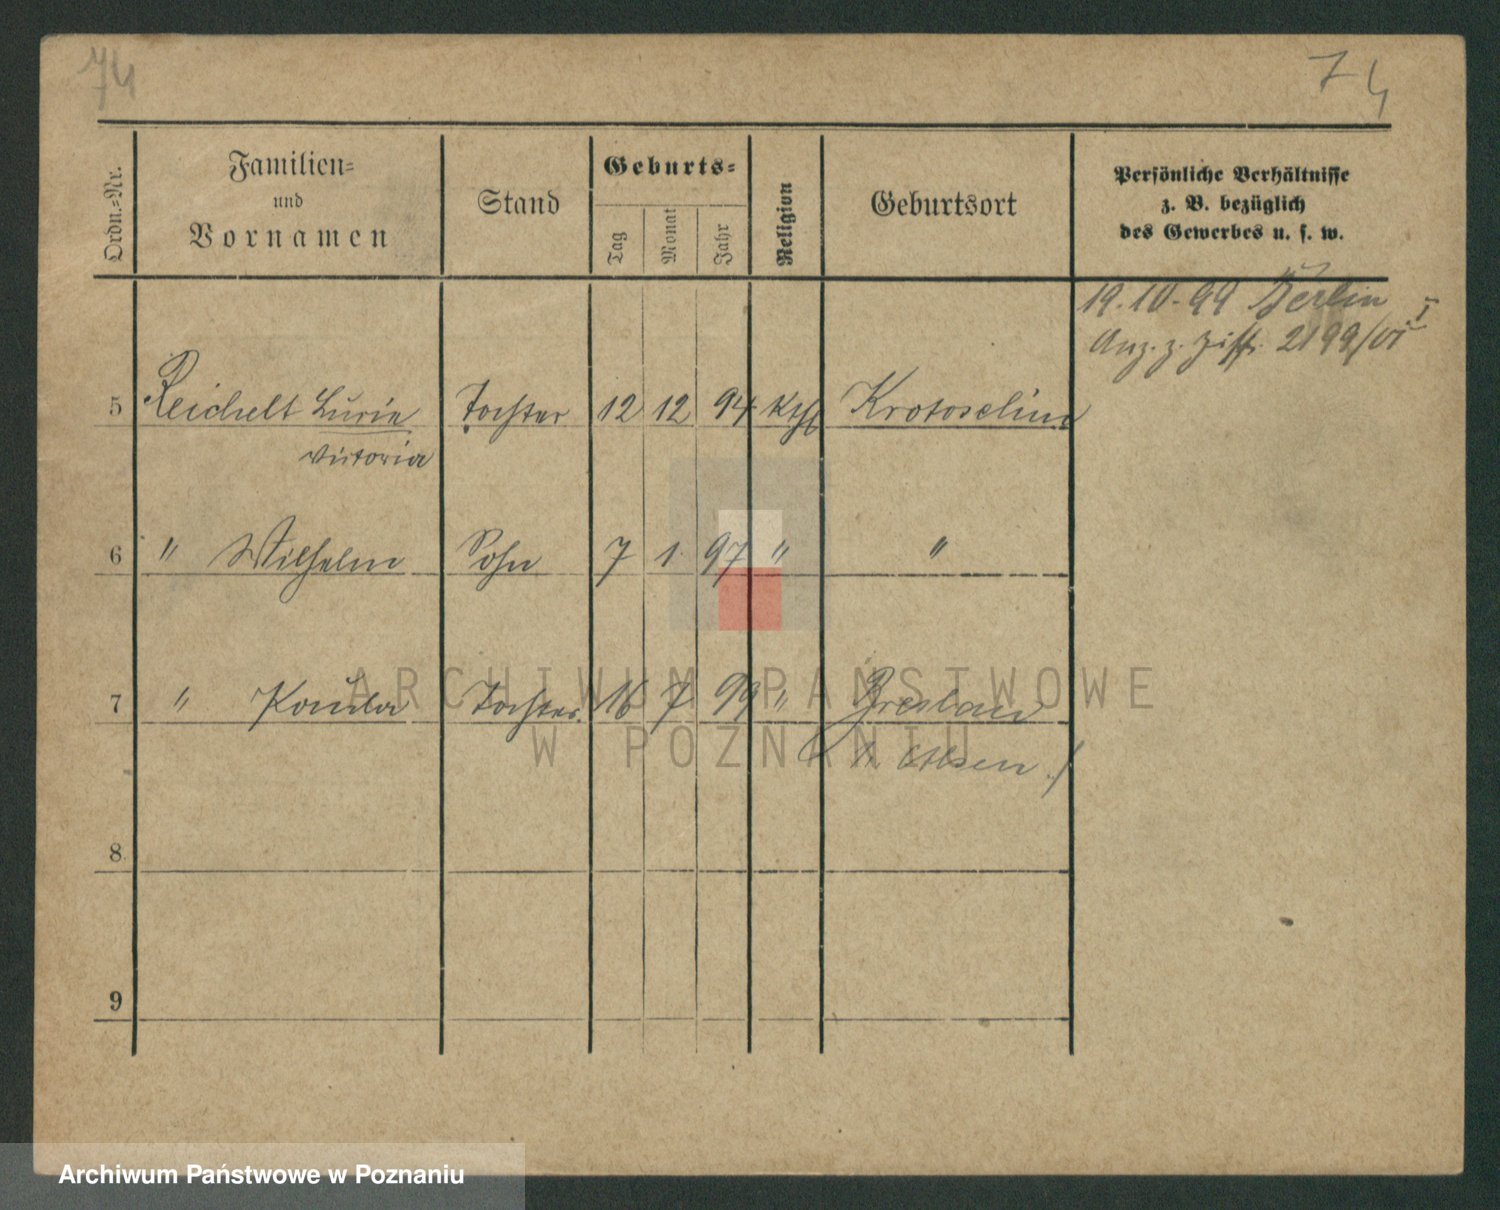 74
74
Ordn.-Nr.
Familien-
und
Vornamen
Stand
Geburts-
Tag
Monat
Jahr
Religion
Geburtsort
Persönliche Verhältnisse
z. B. bezüglich
des Gewerbes u. s. w.
19.10.99 Berlin
Anz. z. 2199/VI I
5 Reichelt Lucie Tochter 12 12 94 Kth Krotoschin
Victoria
6 " Wilhelm Sohn 7 1 97 " "
7 " Tochter 16 7 99 " Breslau
8
9
ARCHIWUM PAŃSTWOWE
W POZNANIU
Archiwum Państwowe w Poznaniu